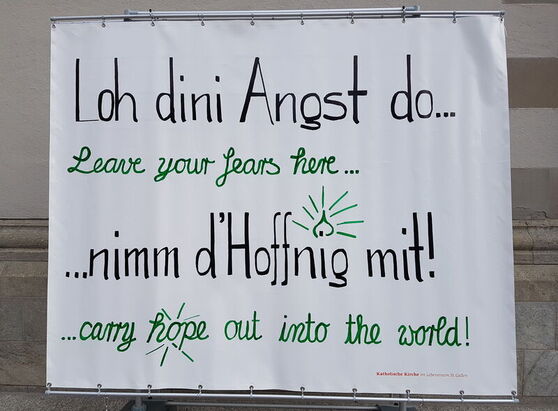 Loh dini Angst do...
Leave your fears here...
...nimm d'Hoffnig mit!
...carry hope out into the world!
Katholische Kirche im Lebensraum St.Gallen